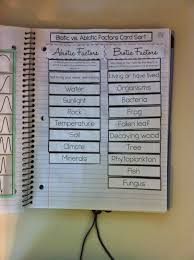 Biotic vs. Abiotic Factors Card Sort
Abiotic Factors
Biotic Factors
Living or have lived
Water
Organisms
Sunlight
Bacteria
Rock
Frog
Temperature
Fallen leaf
Soil
Decaying wood
Climate
Tree
Minerals
Phytoplankton
Fish
Fungus